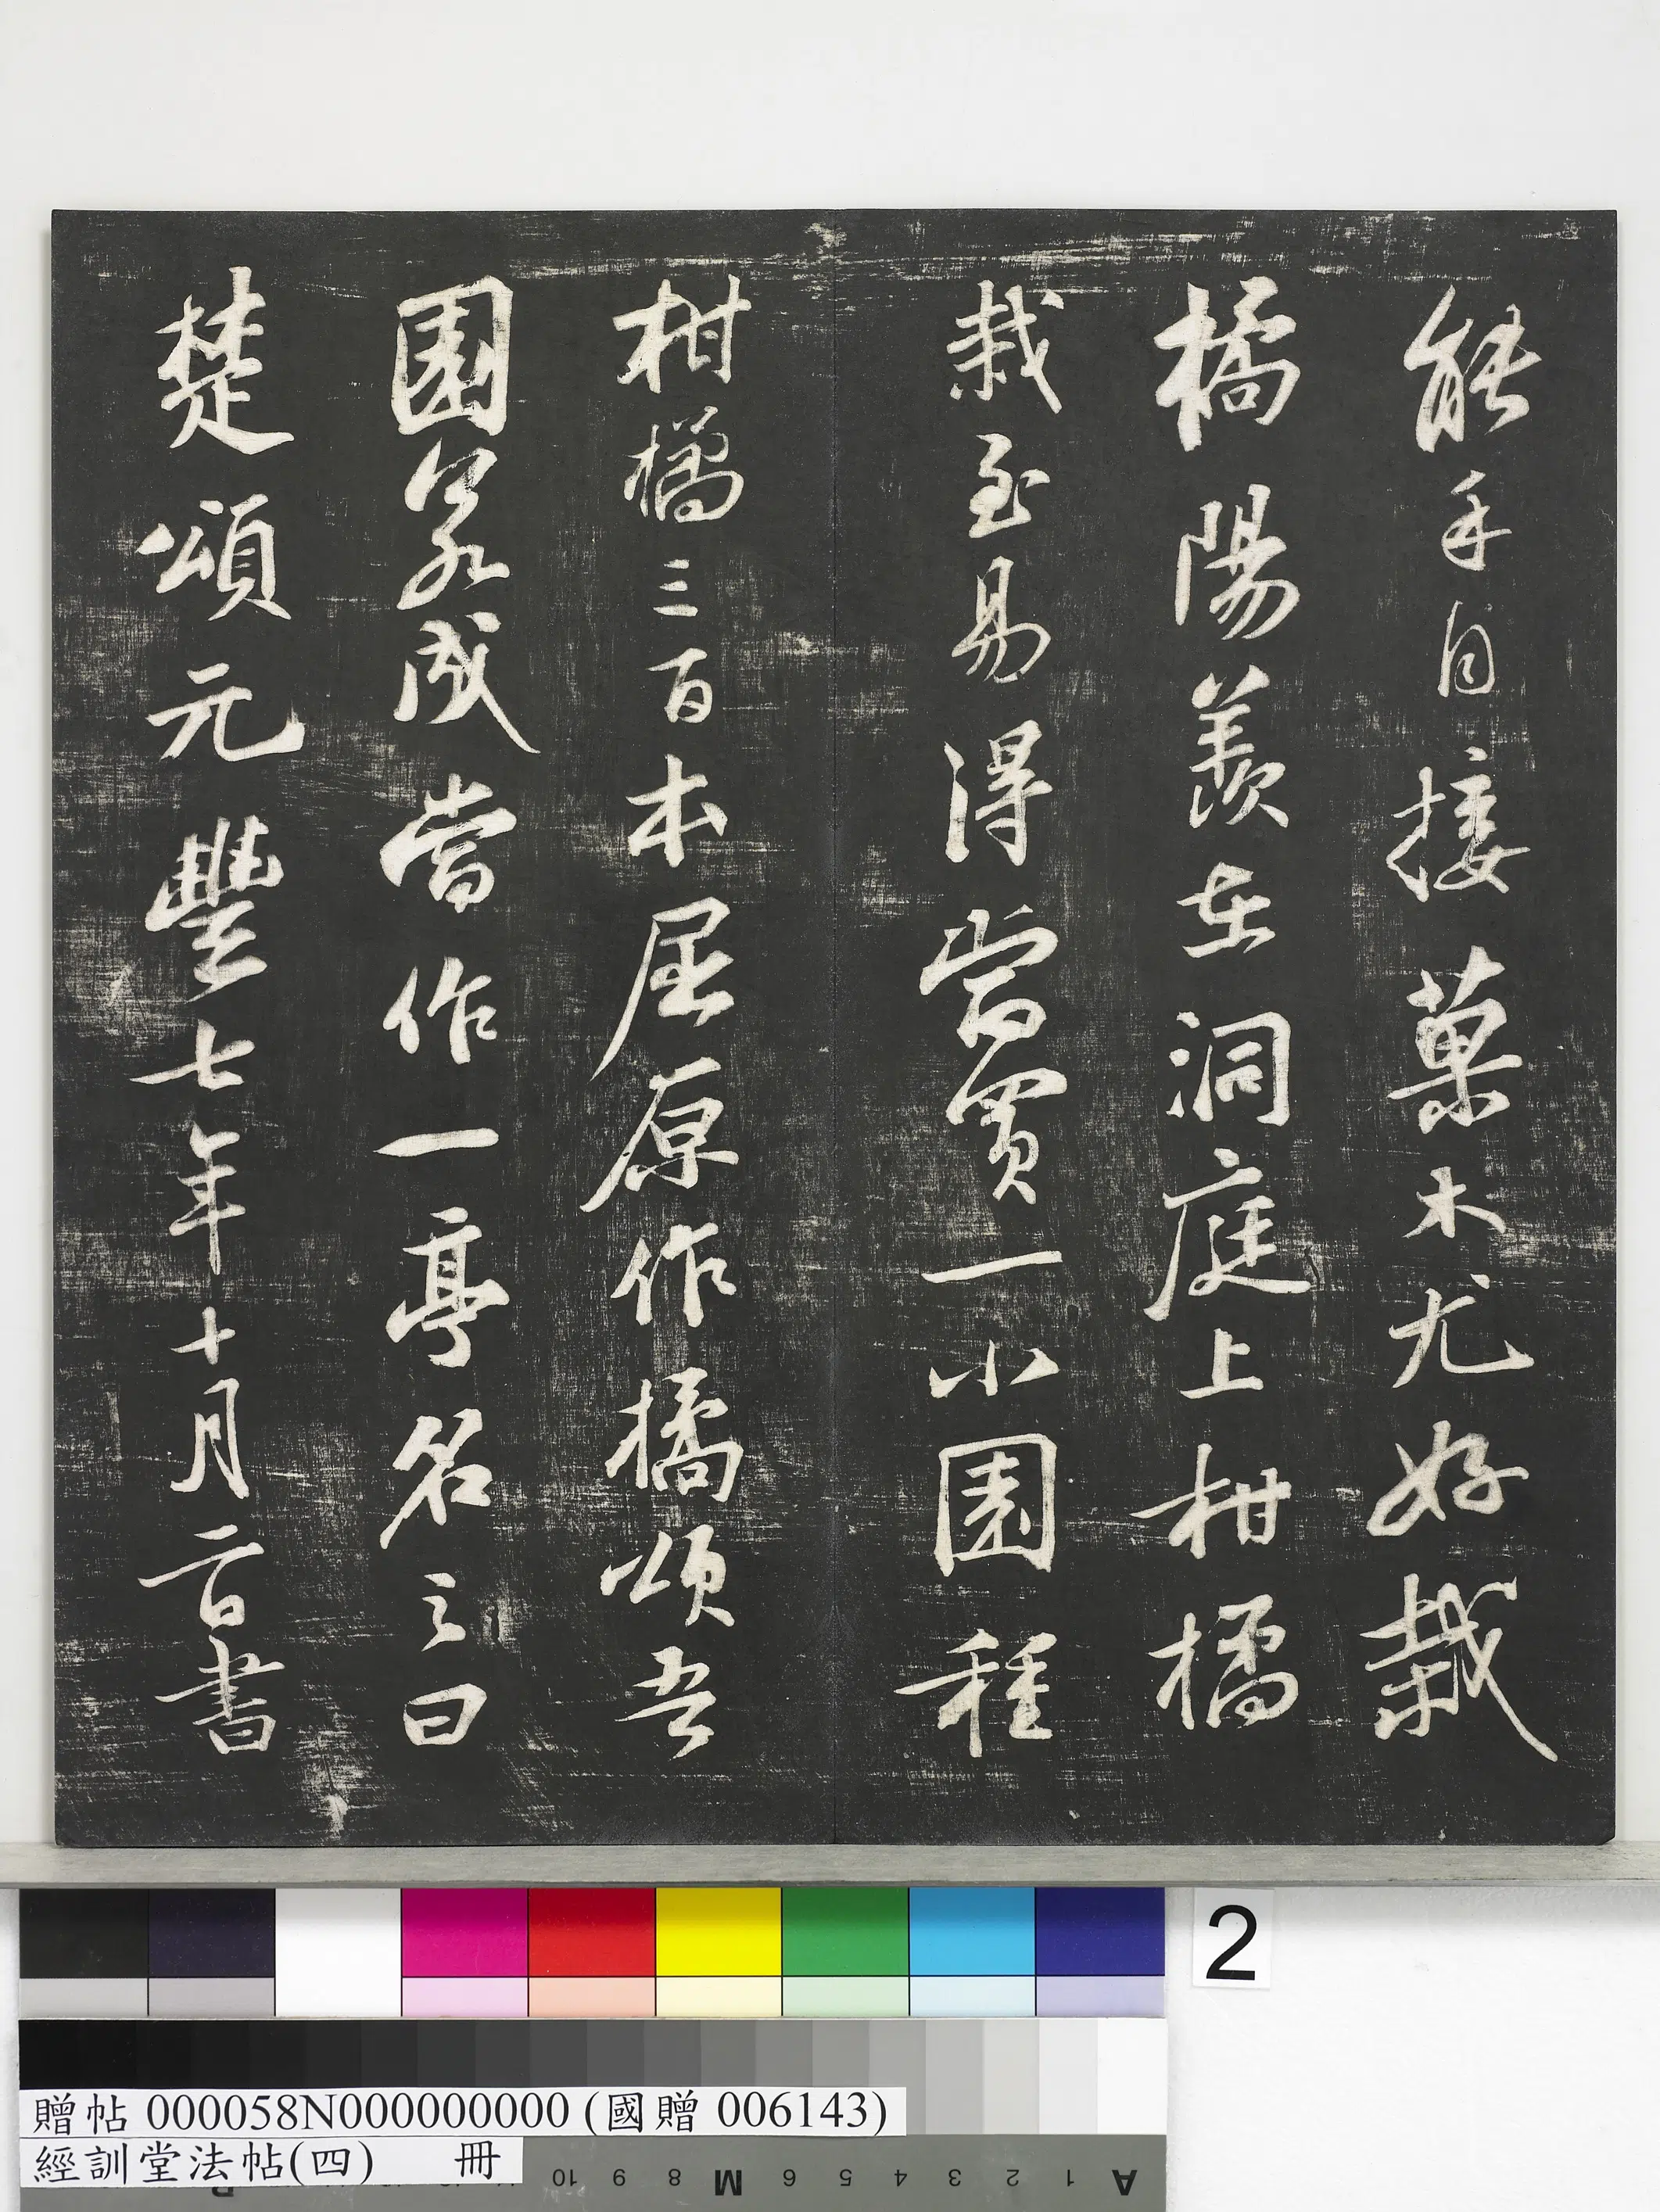 能手自接菓木尤好栽
橘陽羨在洞庭上柑橘
栽至易得當買一小園種
柑橘三百本屈原作橘頌吾
園若成當作一亭名之曰
楚頌元豐七年十月二日書
2
贈帖 000058N000000000 (國贈 006143)
經訓堂法帖(四) 冊
10 9 8 M 6 5 4 3 2 1 A